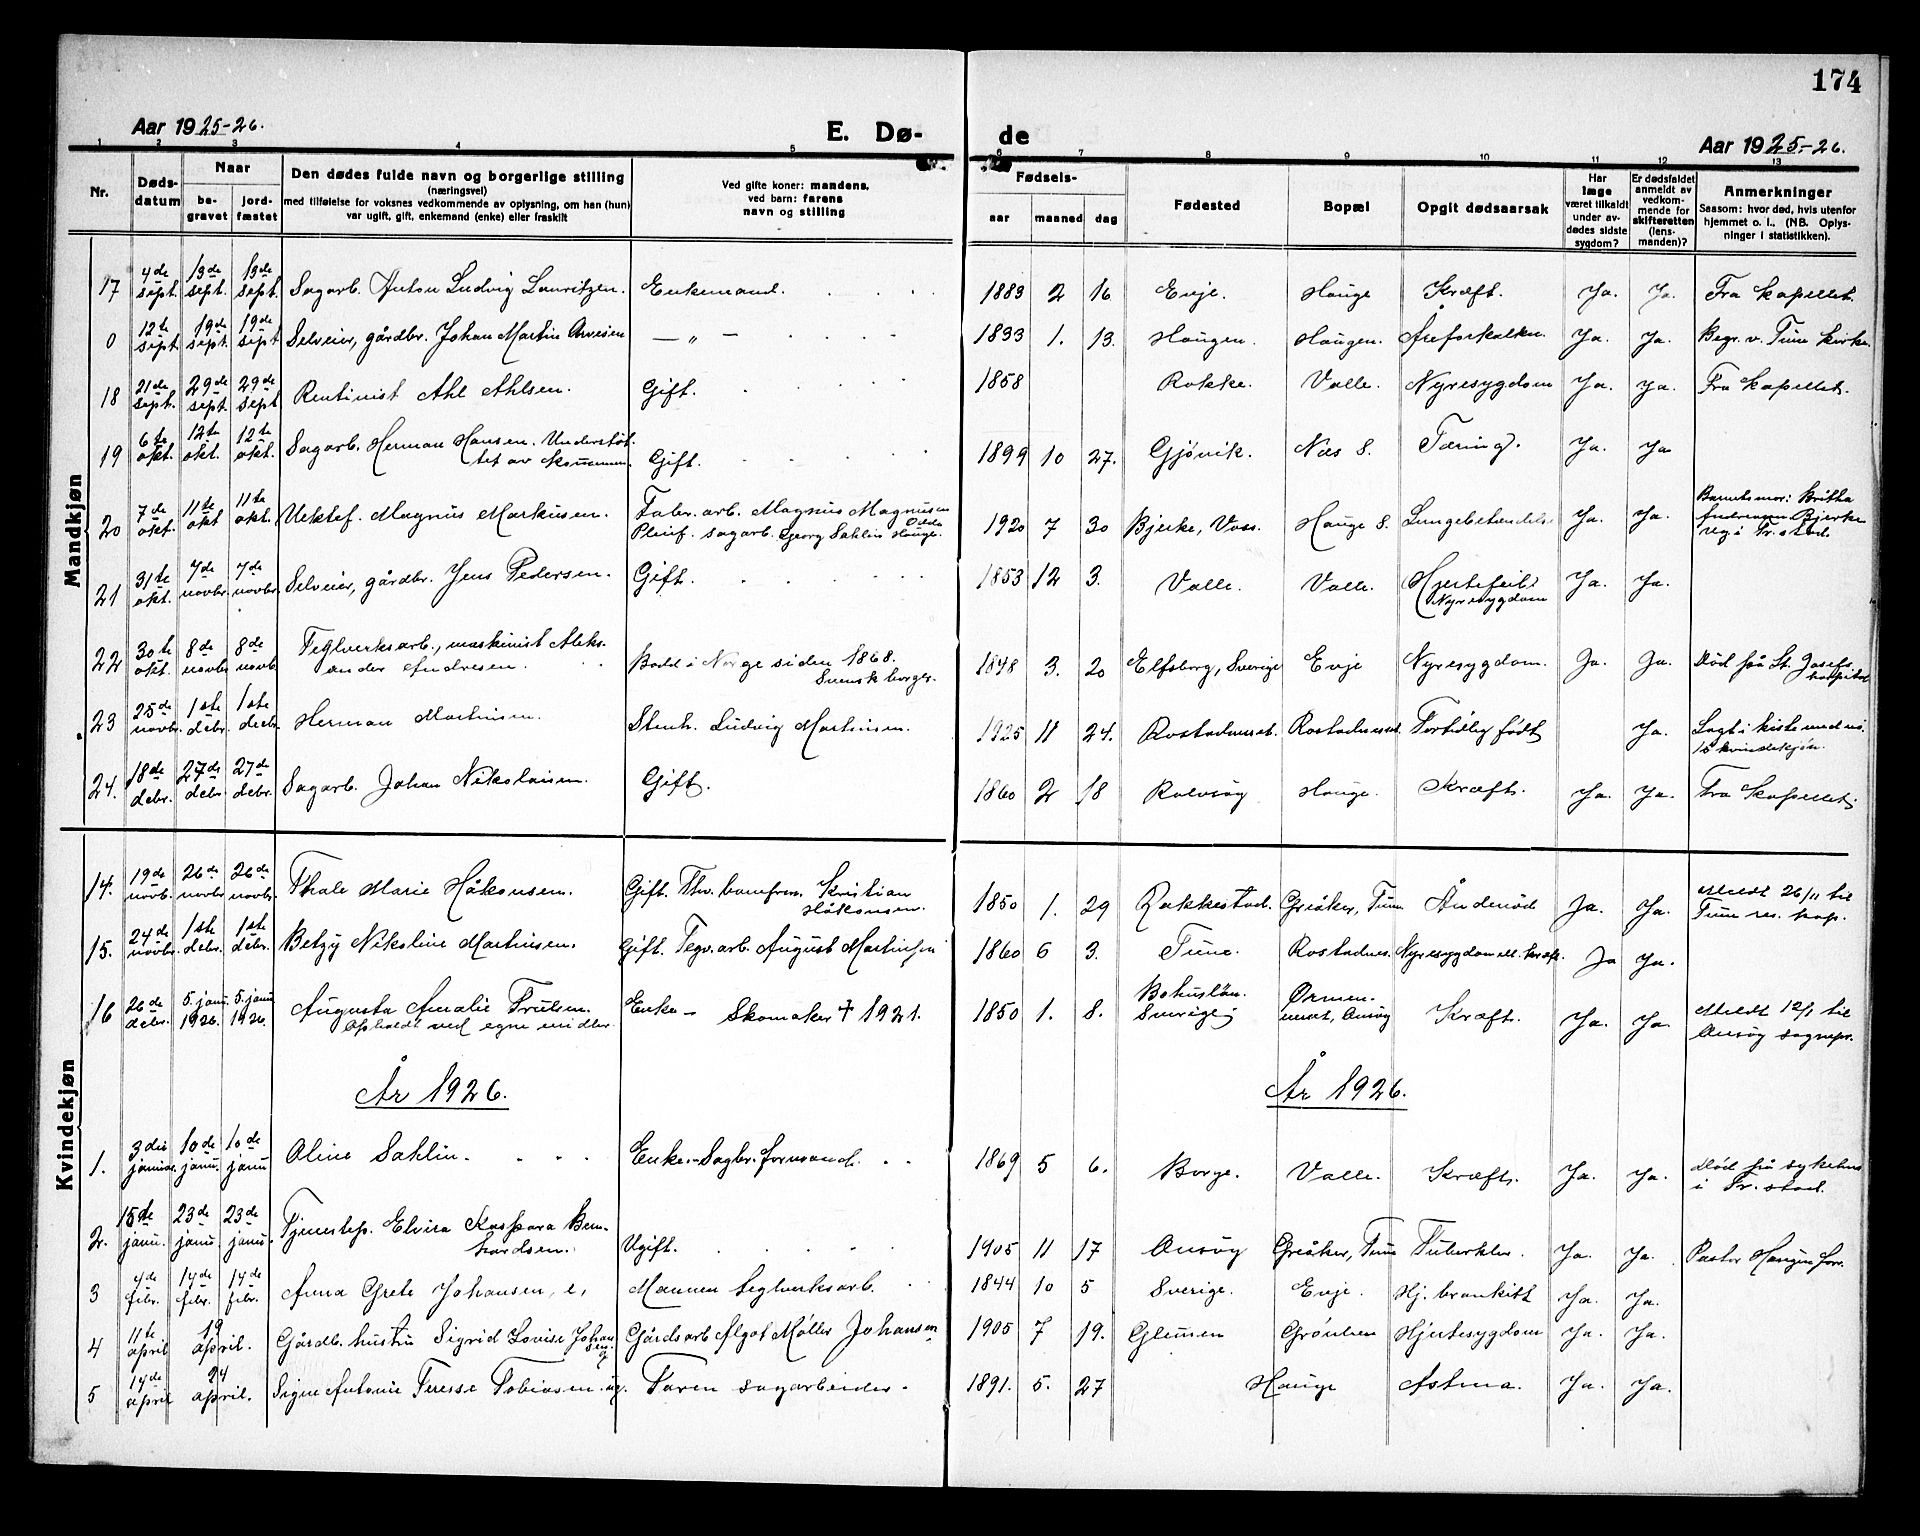 174
Aar 1925-26.
E. Dø-
de
Aar 1925-26.
1 2 3 4 5 6 7 8 9 10 11 12 13
Nr.
Døds-
datum
Naar
be-
gravet
jord-
fæstet
Den dødes fulde navn og borgerlige stilling
(næringsvei)
med tilføielse for voksnes vedkommende av oplysning, om han (hun)
var ugift, gift, enkemand (enke) eller fraskilt
Ved gifte koner: mandens,
ved barn: farens
navn og stilling
Fødsels-
aar maaned dag
Fødested
Bopæl
Opgit dødsaarsak
Har
læge
været tilkaldt
under av-
dødes sidste
sygdom?
Er dødsfaldet
anmeldt av
vedkom-
mende for
skifteretten
(lens-
manden)?
Anmerkninger
Saasom: hvor død, hvis utenfor
hjemmet o. l., (NB. Oplys-
ninger i statistikken).
Mandkjøn
17 4de sept. 13de sept. 13de sept. Sagarb. Anton Ludvig Lauritzen. Enkemand. 1883 2 16 Evje. Hauge Kræft. Ja. Ja. Fra kapellet.
0 12te sept 19de sept. 19de sept Selveier, gårdbr. Johan Martin Arvesen — „ — 1833 1. 13. Haugen. Haugen. Åreforkalkn. Ja. Ja. Begr. v. Tune kirke
18 21de sept. 29de sept. 29de sept Rentinist Ahl Ahlsen. Gift. 1858 Rokke. Valle. Nyresygdom Ja. Ja. Fra Kapellet.
19 6te okt. 12te okt. 12te okt. Sagarb. Herman Hansen. Understøt-
tet av kommunen. Gift. 1899 10 27. Gjøvik. Næs S. Tæring. Ja. Ja
20 7de okt. 11te okt 11te okt. Uektef. Magnus Markusen. Fabr. arb. Magnus Magnussen
Pleief. sagarb. Georg Sahlin Hauge. 1920 7 30 Bjerke, Voss. Hauge S. Lungebetendelse Ja. Ja. Barnets mor: Britha
Andreasen Bjerke
reg. i Fr.stad.
21 31te okt. 7de novbr. 7de novbr. Selveier, gårdbr. Jens Pedersen. Gift. 1853 12 3. Valle. Valle. Hjertefeil
Nyresygdom Ja. Ja.
22 30te okt. 8de novbr 8de novb. Teglverksarb., maskinist Aleks-
ander Andresen. Bodd i Norge siden 1868.
Svensk borger. 1848 3. 20 Elfsborg, Sverige Evje Nyresygdom. Ja. Ja. Død på St. Josefs
hospital
23 25de novbr. 1ste debr. 1ste debr. Herman Martinsen. Stenh. Ludvig Martinsen. 1925 11 24. Rostadneset. Rostadneset. Fortidlig født Ja. Lagt i kiste med nr.
15 kvindekjøn.
24. 18de debr. 27de debr. 27de debr. Sagarb. Johan Nikolaisen. Gift. 1860 2 18 Rolvsøy Hauge. Kræft. Ja. Ja. Fra Kapellet.
Kvindekjøn
14. 19de novb. 26de novbr 26de novbr. Thale Marie Håkonsen. Gift. Kristian
Håkonsen. 1850 1. 29 Rakkestad. Greåker, Tune Åndenød Ja. Ja. Meldt 26/11 til
Tune res. kap.
15. 24de novbr. 1ste debr. 1ste debr. Betzy Nikoline Martinsen. Gift. Tegv. arb. August Martinsen 1860 6 3. Tune. Rostadnes. Nyresygdom ell. kræft. Ja Ja.
16 26de debr. 5. janu. 1926. 5. janu 1926. Augusta Amalie Trulsen.
Opholdt ved egne midler Enke – Skomaker † 1921. 1850 1. 8. Bohuslän.
Sverige Ørmen-
neset, Onsøy Kræft. Ja. Ja. Meldt 12/1 til
Onsøy sognepr.
År 1926.
År 1926.
1. 3die januar. 10de janu. 10de janu Oline Sahlin. Enke. – Sagbr. formand. 1869 5 6. Borge. Valle. Kræft. Ja. Ja. Død på sykehus
i Fr. stad.
2. 15de janu. 23de janu. 23de janu. Tjenestep. Elvira Kaspara Bern-
hardsen. Ugift. 1905 11 17 Onsøy Greåker, Tune Tuberklor. Ja. Ja. Pastor Haugen forr.
3 4de febr. 14de febr. 14de febr. Anna Grete Johansen, e, Mannen teglverksarb. 1844 10 5 Sverige. Evje. Hj. bronkitt Ja. Ja.
4 11te april 19 april. Gårdb. hustru Sigrid Lovise Johansen g Gårdsarb Algot Møller Johansen 1905 7 19. Glemmen Grønlien Hjertesygdom Ja. Ja.
5 14de april 24 april. Signe Antonie Terese Tobiasen ug. Faren sagarbeider. 1891. 5. 27 Hauge Astma. Ja. Ja.